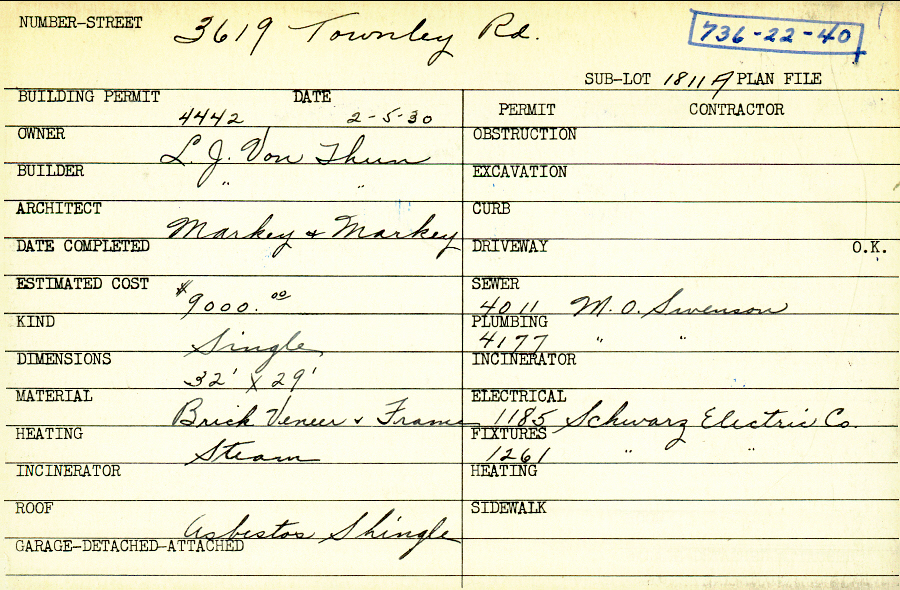 NUMBER-STREET 3619 Townley Rd. 736-22-40
SUB-LOT 1811A PLAN FILE
BUILDING PERMIT 4442 DATE 2-5-30
PERMIT CONTRACTOR
OWNER L. J. Von Thun
OBSTRUCTION
BUILDER " "
EXCAVATION
ARCHITECT Markey & Markey
CURB
DATE COMPLETED
DRIVEWAY O.K.
ESTIMATED COST $9000.00
SEWER 4011 M. O. Swenson
KIND Single
PLUMBING 4177 " "
DIMENSIONS 32' x 29'
INCINERATOR
MATERIAL Brick Veneer & Frame
ELECTRICAL 1185 Schwarz Electric Co.
HEATING Steam
FIXTURES 1261 " "
INCINERATOR
HEATING
ROOF Asbestos Shingle
SIDEWALK
GARAGE-DETACHED-ATTACHED